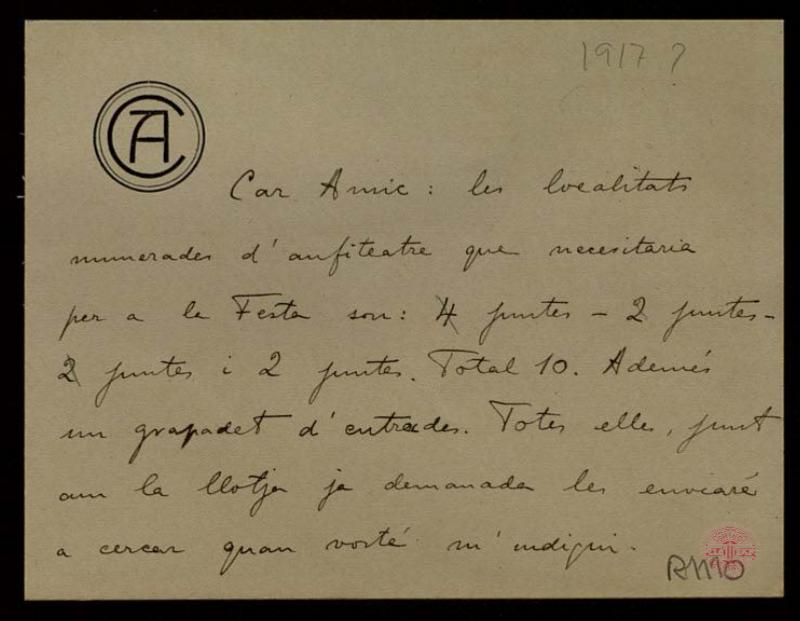 1917?
CA
Car Amic: les localitats
numerades d'anfiteatre que necesitaria
per a la Festa son: 4 juntes - 2 juntes -
2 juntes i 2 juntes. Total 10. Ademés
un grapadet d'entrades. Totes elles, junt
am la llotja ja demanada les enviaré
a cercar quan vosté m'indiqui.